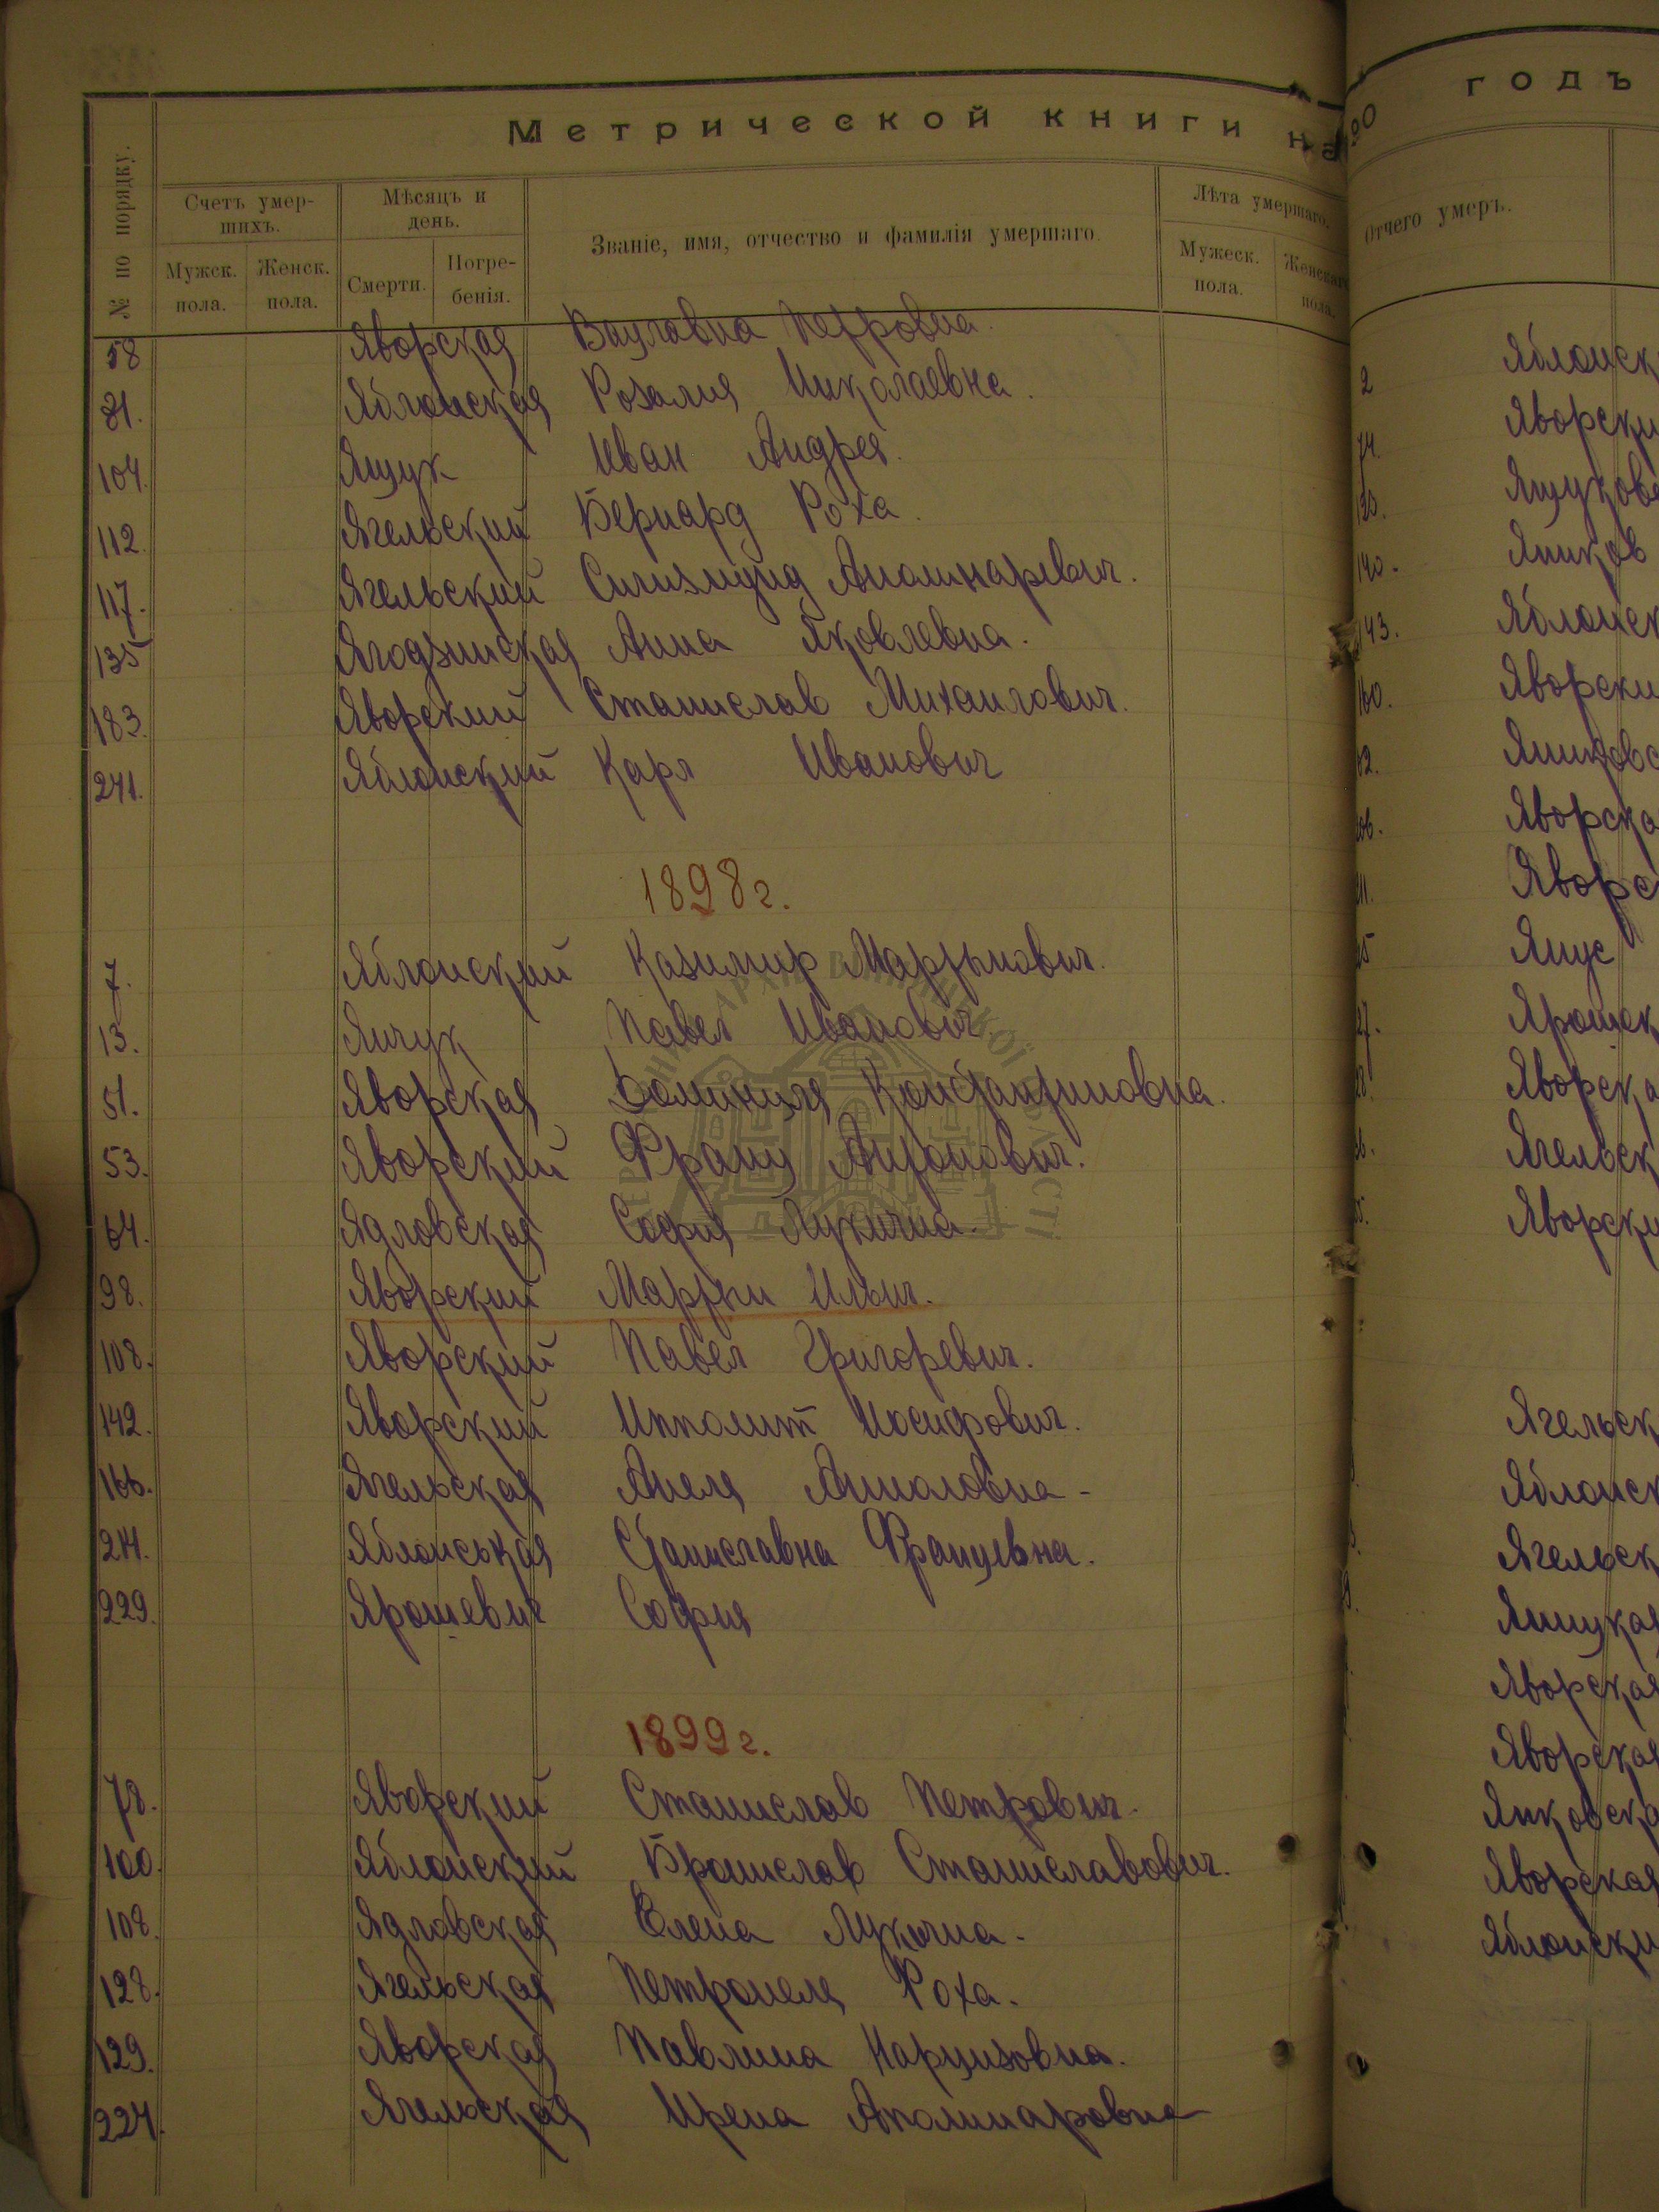 Метрической книги на 190 годъ
№ по порядку.
Счетъ умершихъ.
Мѣсяцъ и день.
Званіе, имя, отчество и фамилія умершаго.
Лѣта умершаго.
Отчего умеръ.
Мужск. пола.
Женск. пола.
Смерти.
Погребенія.
Мужеск. пола.
Женскаго пола.
58 Яворская Вацлавна Петровна.
81. Яблонская Розалия Николаевна.
104. Ящук Иван Андрея.
112. Ягельский Бернард Роха.
117. Ягельский Сигизмунд Аполинаревич.
135 Ягодзинская Анна Яковлевна.
183. Яворский Станислав Михайлович.
241. Яблонский Карл Иванович
1898 г.
7. Яблонский Казимир Мартынович.
13. Янчук Павел Иванович.
51. Яворская Доминиця Константиновна.
53. Яворский Франц Антонович.
64. Ядловская София Лукична.
98. Яворский Мартин Ильич.
108. Яворский Павел Григоревич.
142. Яворский Ипполит Иосифович.
166. Ягельская Анеля
214. Яблонськая Станиславна Францевна.
229. Ярошевич София
1899 г.
78. Яворский Станислав Петрович.
100. Яблонский Бронислав Станиславович.
108. Ядловская Елена Лукична.
128. Ягельская Петронеля Роха.
129. Яворская Павлина Нарцизовна.
224. Ягельская Ирена Аполинаровна
2 Яблонск
74. Яворски
123.
140.
143. Яблонск
160. Яворски
Яворска
Яворс
Янус
Ярошек
Яворска
Ягельск
Яворски
Ягельск
Яблонск
Ягельск
Яворская
Яворская
Янковска
Яворская
Яблонски